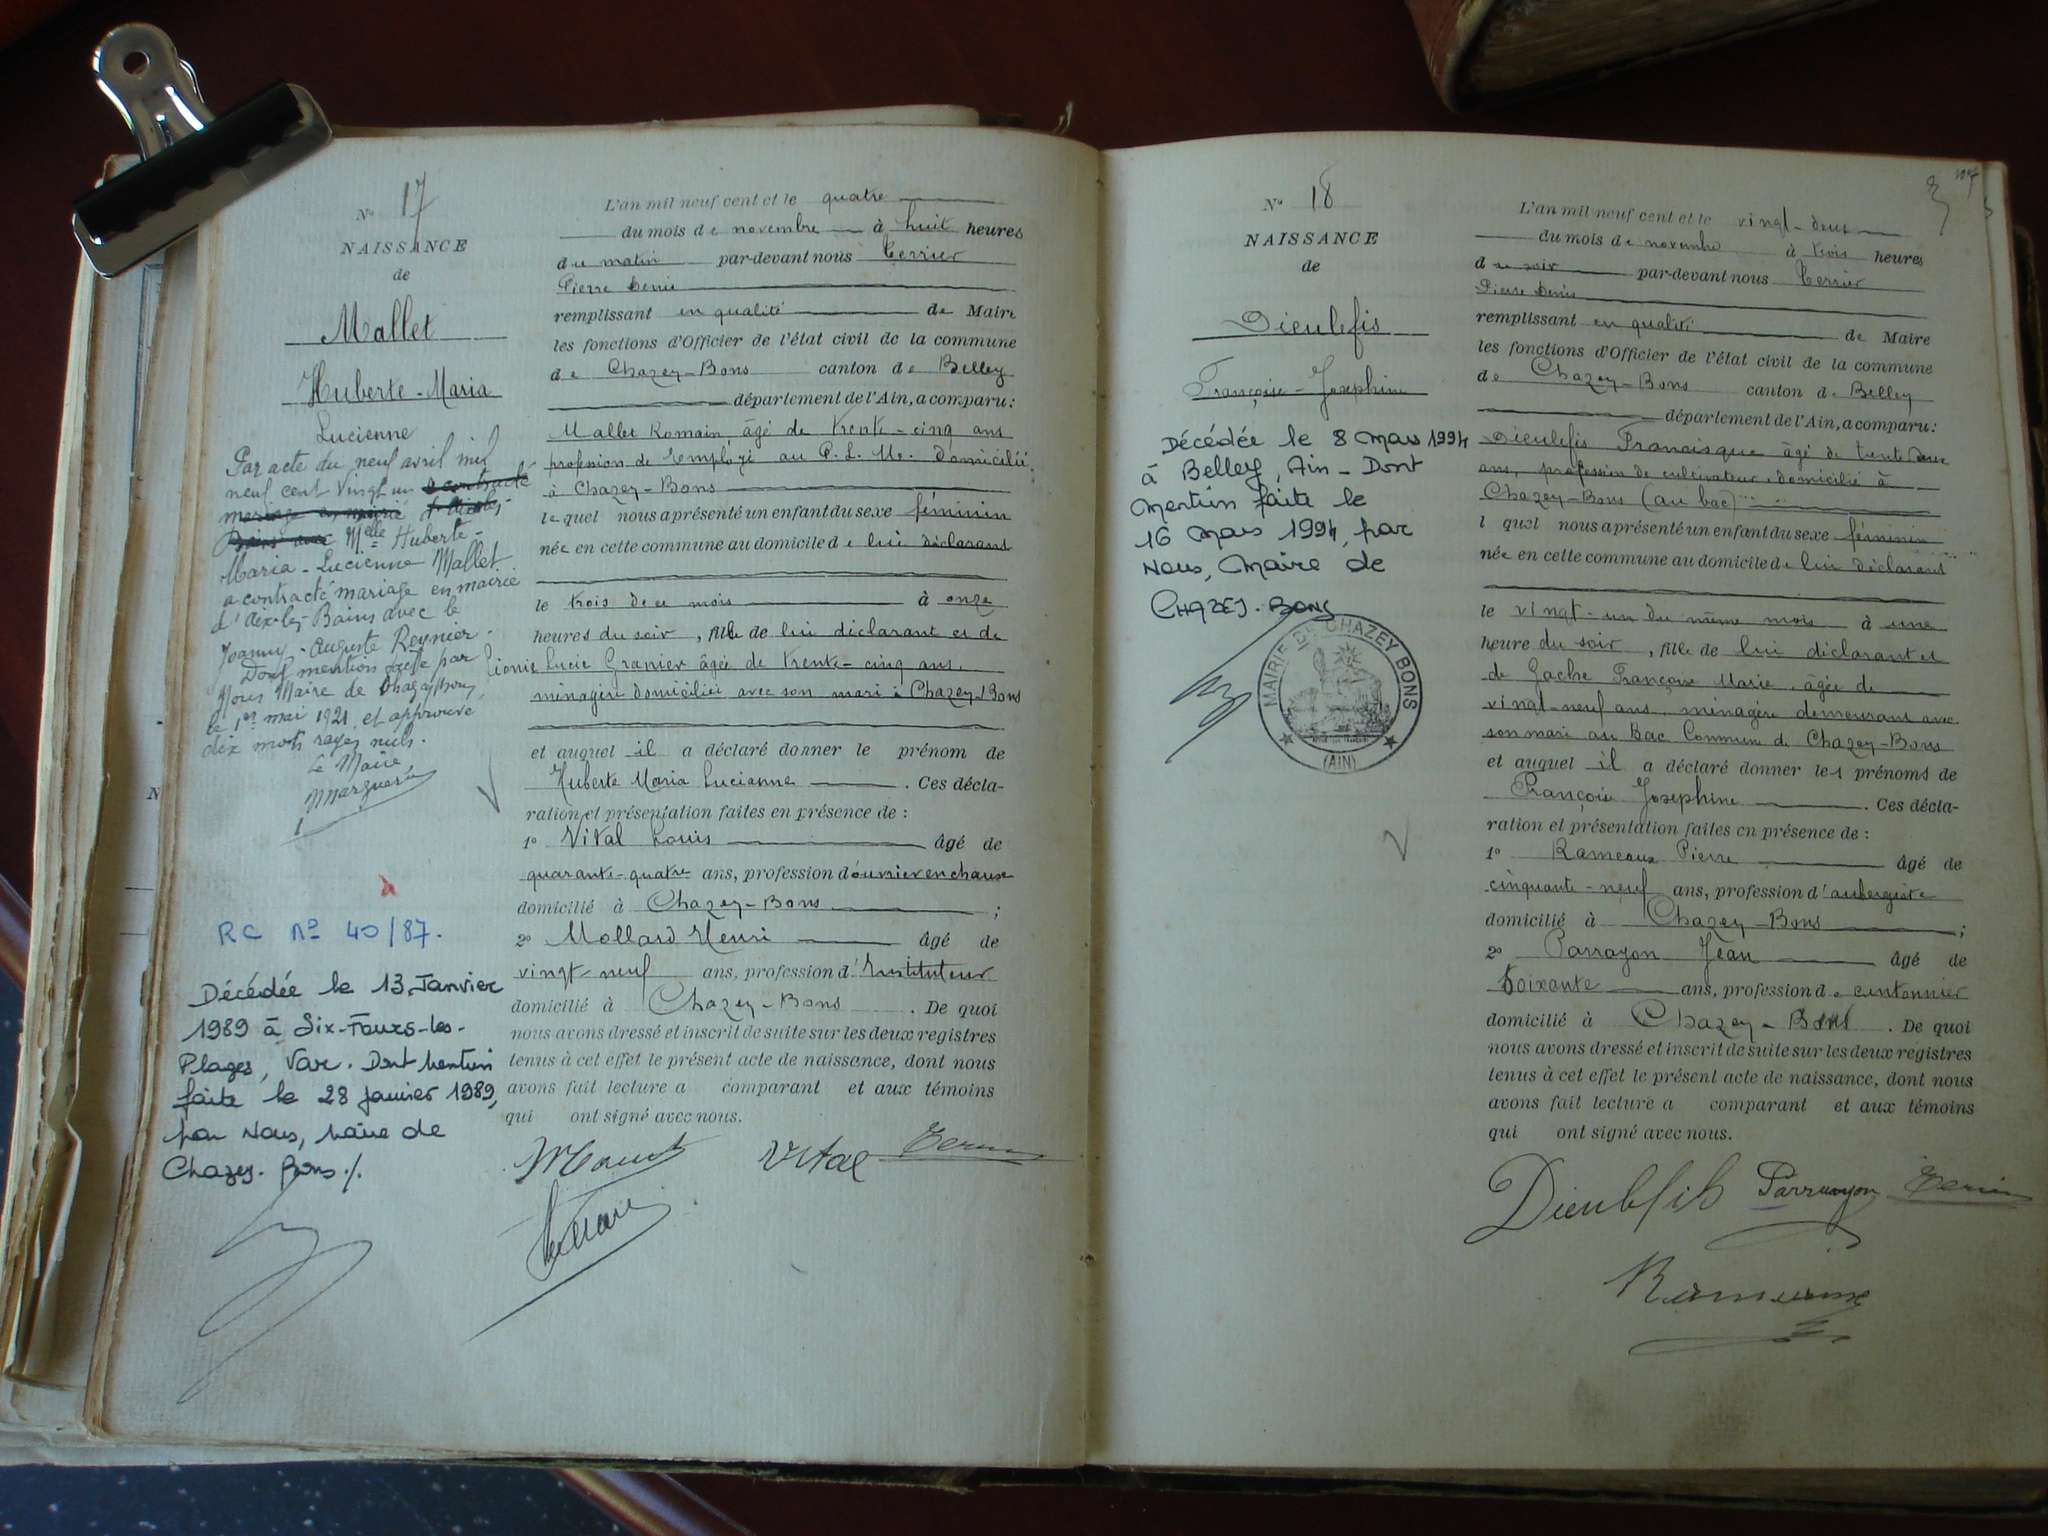 N° 17
NAISSANCE
de
Mallet
Huberte-Maria
Lucienne
Par acte du neuf avril mil
neuf cent vingt un a contracté
mariage en mairie d'Aix-les-
Bains avec Melle Huberte-
Maria-Lucienne Mallet
a contracté mariage en mairie
d'Aix-les-Bains avec le
Joanny-Auguste Reynier.
Dont mention faite par
Nous Maire de Chazey-Bons,
le 1er mai 1921, et approuvé
dix mots rayés nuls.
Le Maire
RC N° 40/87.
Décédée le 13 Janvier
1989 à Six-Fours-les-
Plages, Var. Dont Mention
faite le 28 janvier 1989,
par Nous, Maire de
Chazey-Bons./.
L'an mil neuf cent et le quatre
du mois de novembre à huit heures
du matin par-devant nous Terrier
Pierre Denis
remplissant en qualité de Maire
les fonctions d'Officier de l'état civil de la commune
de Chazey-Bons canton de Belley
département de l'Ain, a comparu:
Mallet Romain, âgé de trente-cinq ans
profession de employé au P.L.M. domicilié
à Chazey-Bons
lequel nous a présenté un enfant du sexe féminin
née en cette commune au domicile de lui déclarant
le trois de ce mois à onze
heures du soir, fille de lui déclarant et de
Lucie Granier âgée de trente-cinq ans,
ménagère domiciliée avec son mari à Chazey-Bons
et auquel il a déclaré donner le prénom de
Huberte Maria Lucienne. Ces décla-
ration et présentation faites en présence de:
1° Vital Louis âgé de
quarante-quatre ans, profession d'ouvrier en chaux
domicilié à Chazey-Bons;
2° Mollard Henri âgé de
vingt-neuf ans, profession d'Instituteur
domicilié à Chazey-Bons. De quoi
nous avons dressé et inscrit de suite sur les deux registres
tenus à cet effet le présent acte de naissance, dont nous
avons fait lecture a comparant et aux témoins
qui ont signé avec nous.
Vital
N° 18
NAISSANCE
de
Dieulefis
Françoise-Josephine
Décédée le 8 Mars 1994
à Belley, Ain - Dont
Mention faite le
16 Mars 1994, par
Nous, Maire de
CHAZEY-BONS
MAIRIE DE CHAZEY BONS
(AIN)
L'an mil neuf cent et le vingt-deux
du mois de novembre à trois heures
du soir par-devant nous Terrier
Pierre Denis
remplissant en qualité de Maire
les fonctions d'Officier de l'état civil de la commune
de Chazey-Bons canton de Belley
département de l'Ain, a comparu:
Dieulefis Francisque âgé de trente deux
ans, profession de cultivateur domicilié à
Chazey-Bons (au bac)
l quel nous a présenté un enfant du sexe féminin
née en cette commune au domicile de lui déclarant
le vingt-un du même mois à une
heure du soir, fille de lui déclarant et
de Gache Françoise Marie, âgée de
vingt-neuf ans, ménagère demeurant avec
son mari au Bac Commune de Chazey-Bons
et auquel il a déclaré donner les prénoms de
Françoise Josephine. Ces décla-
ration et présentation faites en présence de:
1° Rameaux Pierre âgé de
cinquante-neuf ans, profession d'aubergiste
domicilié à Chazey-Bons;
2° Parrayon Jean âgé de
Soixante ans, profession de cantonnier
domicilié à Chazey-Bons. De quoi
nous avons dressé et inscrit de suite sur les deux registres
tenus à cet effet le présent acte de naissance, dont nous
avons fait lecture a comparant et aux témoins
qui ont signé avec nous.
Dieulefis Parrayon